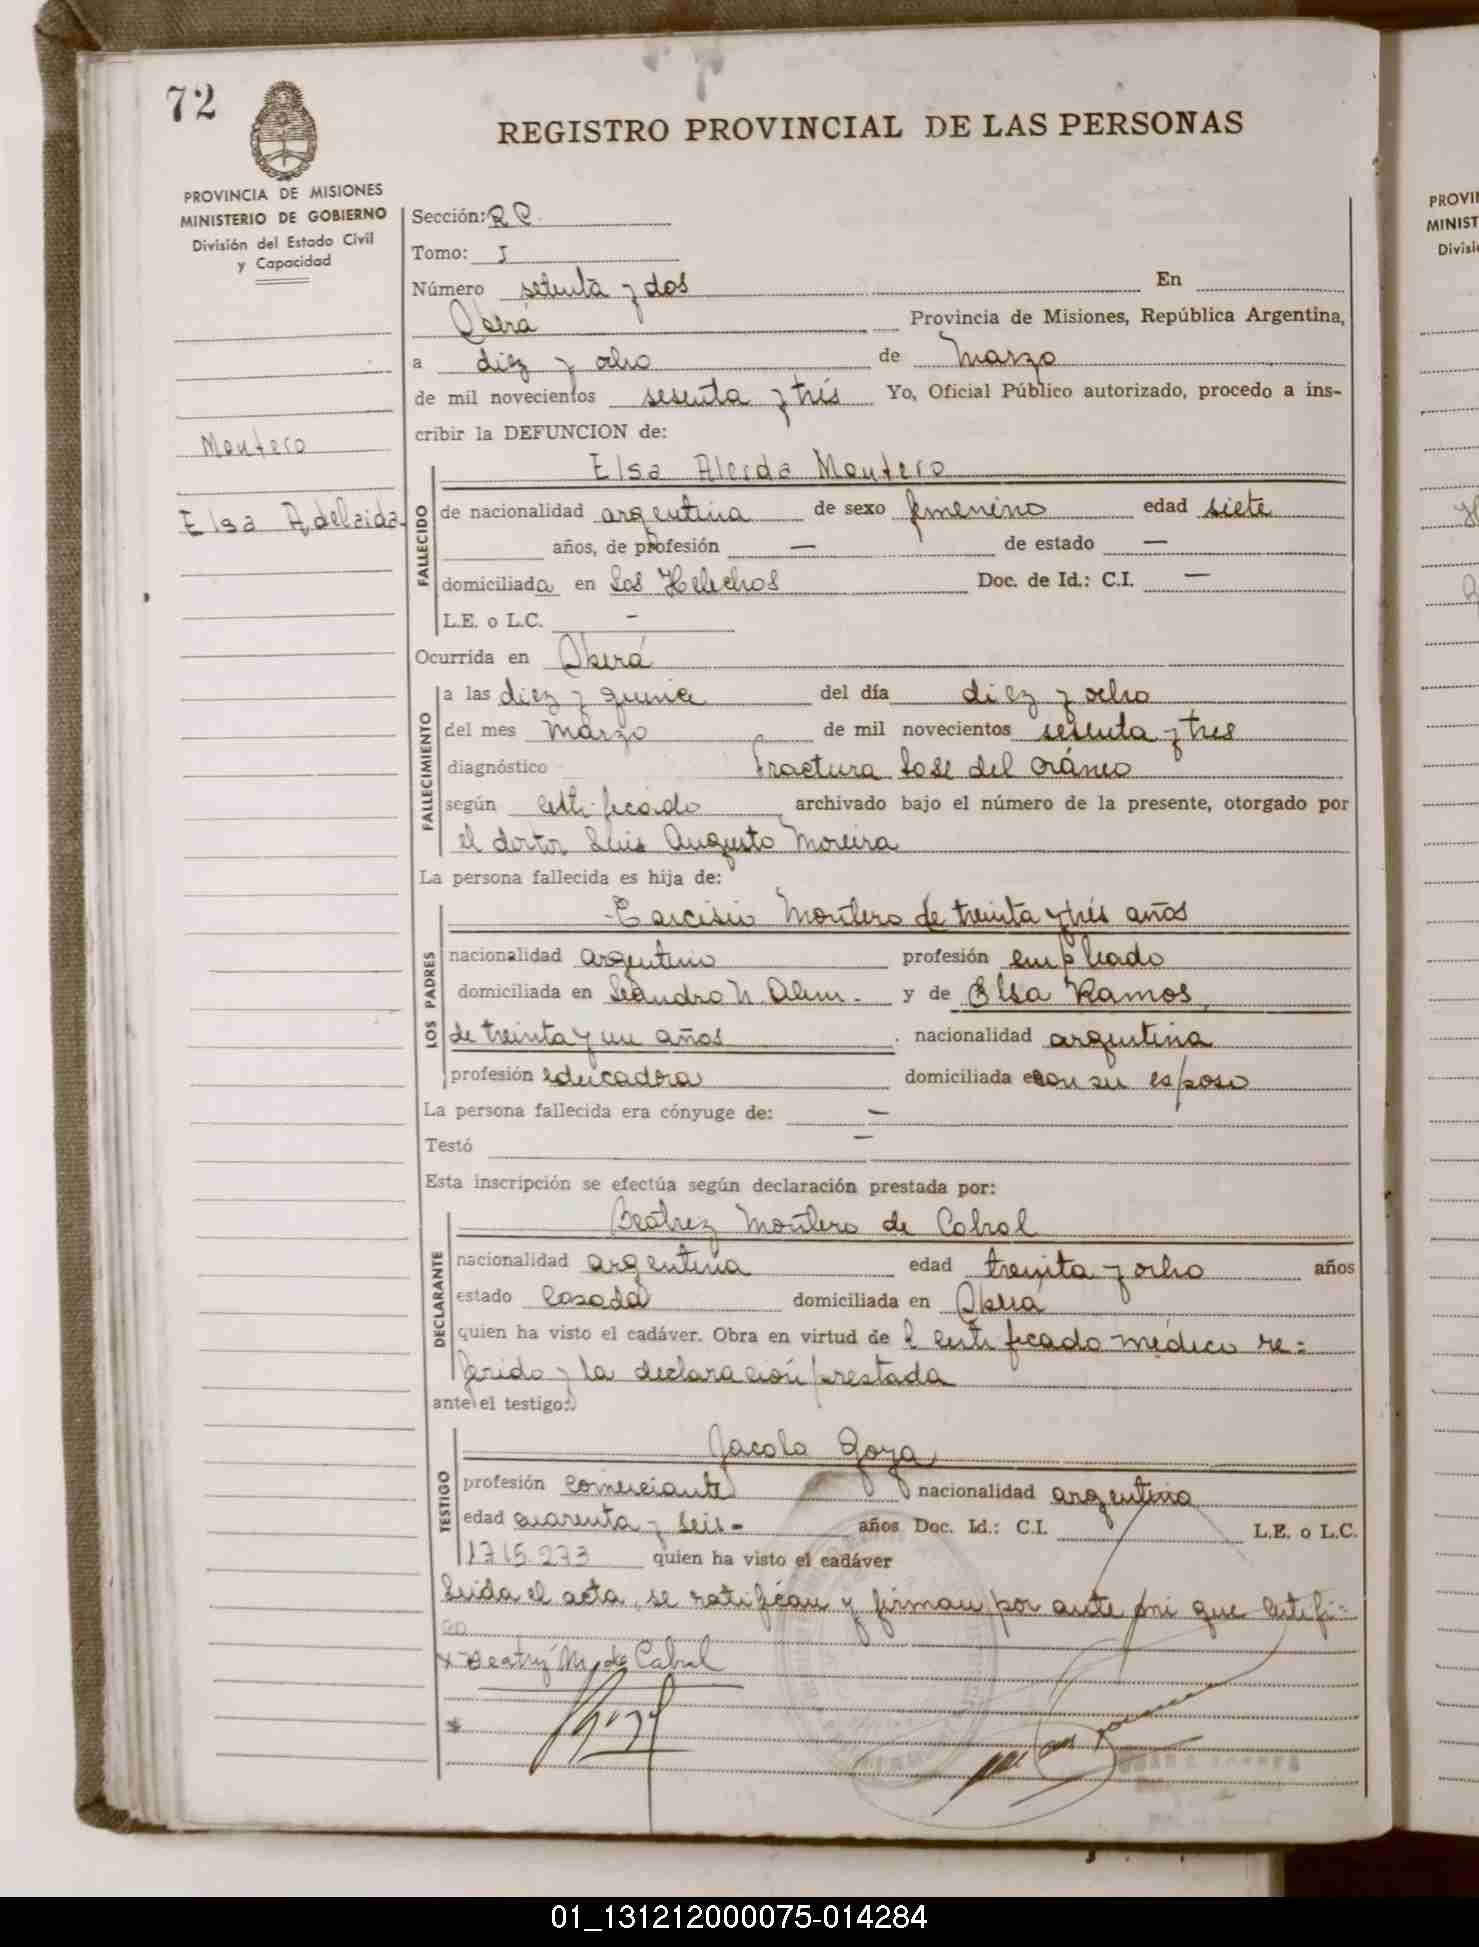 72
REGISTRO PROVINCIAL DE LAS PERSONAS
PROVINCIA DE MISIONES
MINISTERIO DE GOBIERNO
División del Estado Civil
y Capacidad
Montero
Elsa Adelaida
Sección: RP.
Tomo: I
Número setenta y dos En
Oberá Provincia de Misiones, República Argentina,
a diez y ocho de Marzo
de mil novecientos sesenta y trés Yo, Oficial Público autorizado, procedo a ins-
cribir la DEFUNCION de:
FALLECIDO
Elsa Aleida Montero
de nacionalidad argentina de sexo femenino edad siete
años, de profesión — de estado —
domiciliada en Los Helechos Doc. de Id.: C.I. —
L.E. o L.C. -
Ocurrida en Oberá
FALLECIMIENTO
a las diez y quince del día diez y ocho
del mes marzo de mil novecientos sesenta y tres
diagnóstico Fractura base del cráneo
según certificado archivado bajo el número de la presente, otorgado por
el doctor Luis Augusto Moreira
La persona fallecida es hija de:
LOS PADRES
Tarcisio Montero de treinta y trés años
nacionalidad argentino profesión empleado
domiciliada en Leandro N. Alem. y de Elsa Ramos
de treinta y un años nacionalidad argentina
profesión educadora domiciliada con su esposo
La persona fallecida era cónyuge de: —
Testó —
Esta inscripción se efectúa según declaración prestada por:
DECLARANTE
Beatriz Montero de Cabral
nacionalidad argentina edad treinta y ocho años
estado casada domiciliada en Oberá
quien ha visto el cadáver. Obra en virtud de l certificado médico re=
ferido y la declaración prestada
ante el testigo:
TESTIGO
Jacobo Goza
profesión comerciante nacionalidad argentina
edad cuarenta y seis - años Doc. Id.: C.I. L.E. o L.C.
1715.273 quien ha visto el cadáver
Leida el acta, se ratifican y firman por ante mi que certifi=
co
x Beatriz M. de Cabral
PROVIN
MINIST
Divisió
01_131212000075-014284